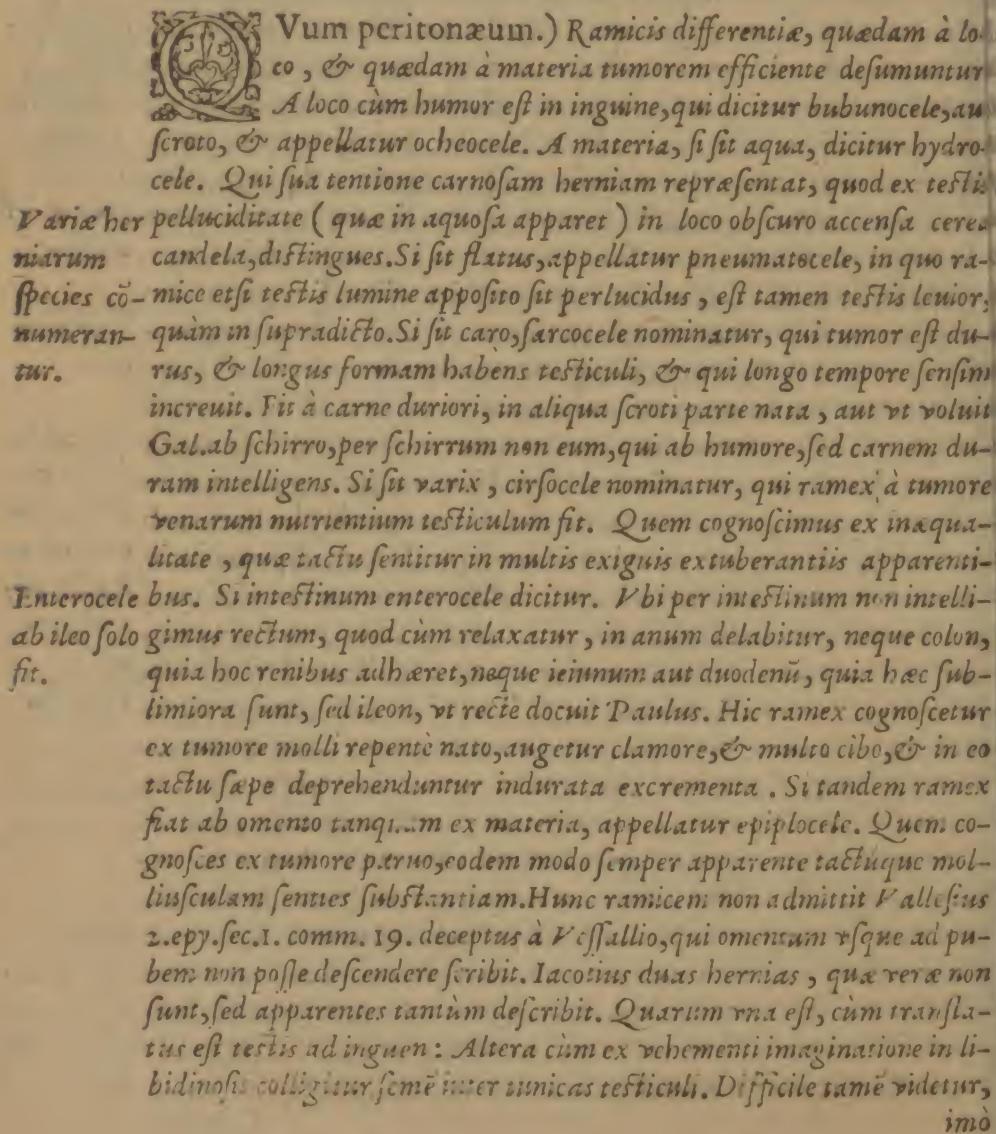 QVum peritonæum.) Ramicis differentiæ, quædam à lo-
co, & quædam à materia tumorem efficiente desumuntur
A loco cùm humor est in inguine, qui dicitur bubunocele, au
scroto, & appellatur ocheocele. A materia, si sit aqua, dicitur hydro-
cele. Qui sua tentione carnosam herniam repræsentat, quod ex testis
pelluciditate ( quæ in aquosa apparet ) in loco obscuro accensa cerea
candela, distingues. Si sit flatus, appellatur pneumatocele, in quo ra-
mice etsi testis lumine apposito sit perlucidus, est tamen testis leuior,
quàm in supradicto. Si sit caro, sarcocele nominatur, qui tumor est du-
rus, & longus formam habens testiculi, & qui longo tempore sensim
increuit. Fit à carne duriori, in aliqua scroti parte nata, aut vt voluit
Gal. ab schirro, per schirrum non eum, qui ab humore, sed carnem du-
ram intelligens. Si sit varix, cirsocele nominatur, qui ramex à tumore
venarum nutrientium testiculum fit. Quem cognoscimus ex inæqua-
litate, quæ tactu sentitur in multis exiguis extuberantiis apparenti-
bus. Si intestinum enterocele dicitur. Vbi per intestinum non intelli-
gimus rectum, quod cùm relaxatur, in anum delabitur, neque colon,
quia hoc renibus adhæret, neque ieiunum aut duodenū, quia hæc sub-
limiora sunt, sed ileon, vt recte docuit Paulus. Hic ramex cognoscetur
ex tumore molli repentè nato, augetur clamore, & multo cibo, & in eo
tactu sæpe deprehenduntur indurata excrementa. Si tandem ramex
fiat ab omento tanquam ex materia, appellatur epiplocele. Quem co-
gnosces ex tumore paruo, eodem modo semper apparente tactuque mol-
liusculam senties substantiam. Hunc ramicem non admittit Vallesius
2. epy. sec. 1. comm. 19. deceptus à Vessallio, qui omentum vsque ad pu-
bem non posse descendere scribit. Iacotius duas hernias, quæ veræ non
sunt, sed apparentes tantùm describit. Quarum vna est, cùm transla-
tus est testis ad inguen: Altera cùm ex vehementi imaginatione in li-
bidinosis colligitur semē inter tunicas testiculi. Difficile tamē videtur,
imò
Variæ her
niarum
species cō-
numeran-
tur.
Enterocele
ab ileo solo
fit.